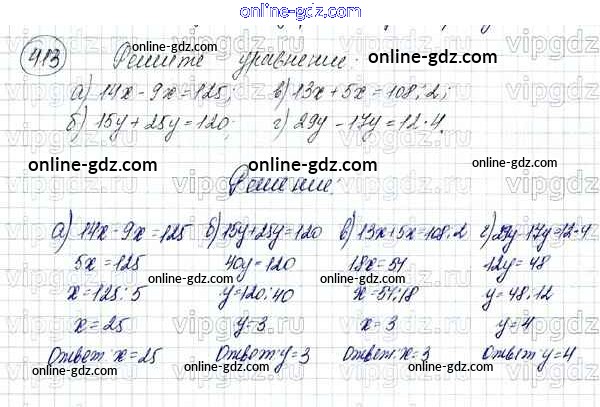 online-gdz.com
413 Решите уравнение:
а) 14x - 9x = 125; в) 13x + 5x = 108 : 2;
б) 15y + 25y = 120; г) 29y - 17y = 12 · 4.
online-gdz.com online-gdz.com
online-gdz.com online-gdz.com online-gdz.com
Решение:
а) 14x - 9x = 125 б) 15y + 25y = 120 в) 13x + 5x = 108 : 2 г) 29y - 17y = 12 · 4
5x = 125 40y = 120 18x = 54 12y = 48
x = 125 : 5 y = 120 : 40 x = 54 : 18 y = 48 : 12
x = 25 y = 3 x = 3 y = 4
Ответ: x = 25 Ответ: y = 3 Ответ: x = 3 Ответ: y = 4
online-gdz.com online-gdz.com online-gdz.com
online-gdz.com online-gdz.com
vipgdz.ru